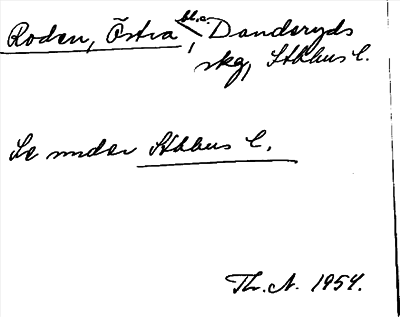 Roden, Östra bl.a. Danderyds
skg, Sthlms l.
Se under Sthlms l.
Th. N. 1954.